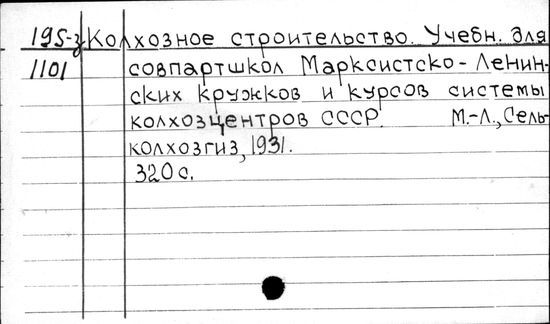 195-з Колхозное строительство. Учебн. для
1101 совпартшкол Марксистско-Ленин-
ских кружков и курсов системы
колхозцентров СССР. М.-Л., Сель-
колхозгиз, 1931.
320 с.